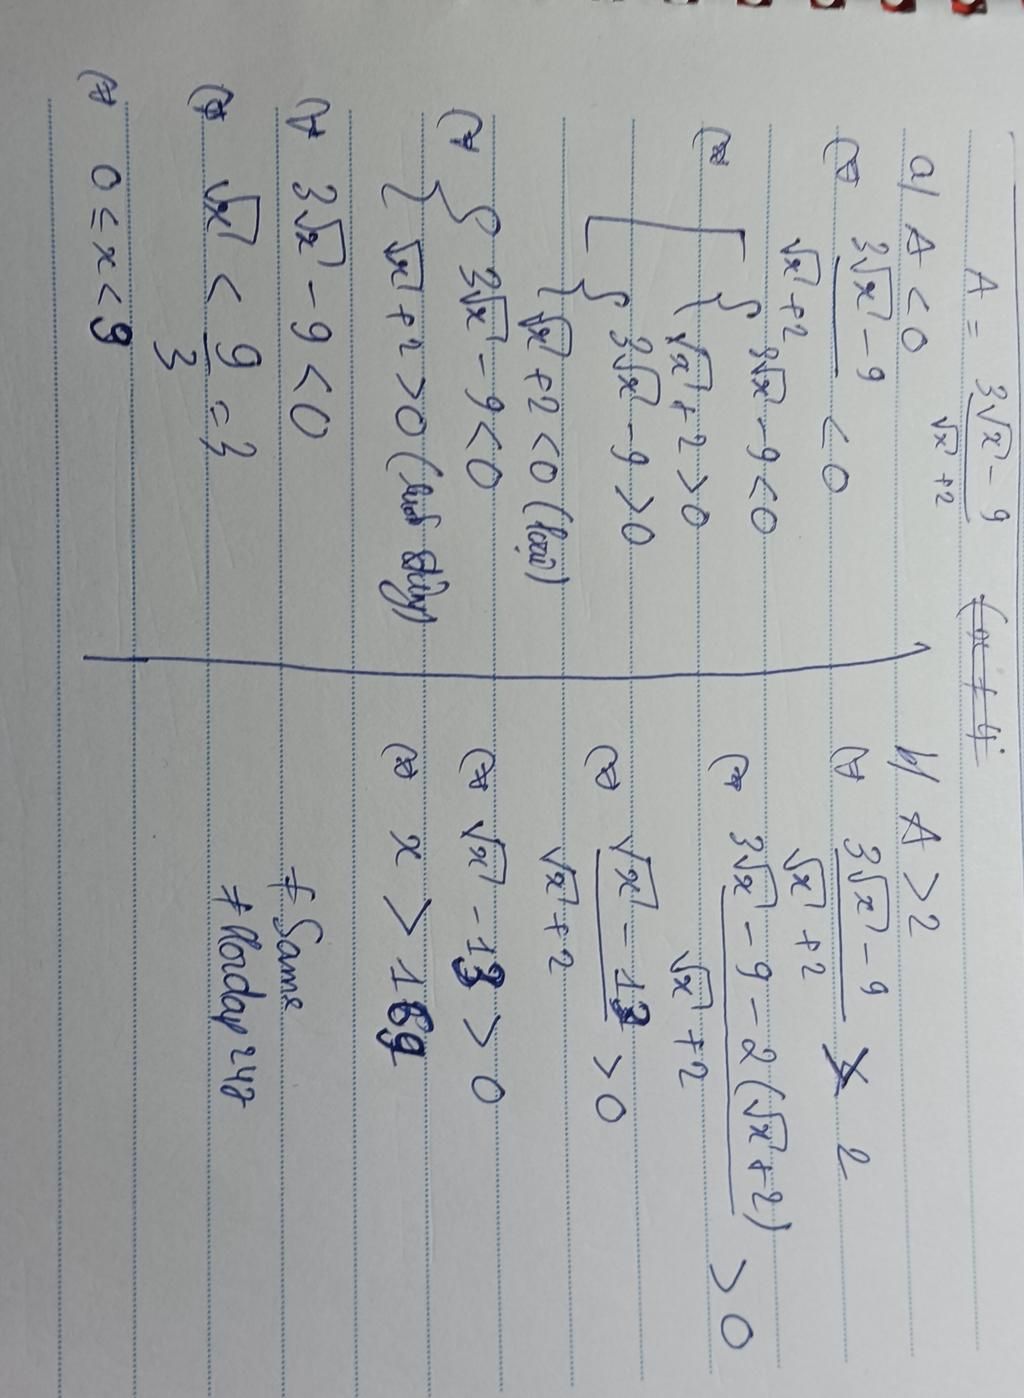 A = (3√x - 9)/(√x + 2) (x ≠ 4)
a/ A < 0
⇔ (3√x - 9)/(√x + 2) < 0
⇔ [ { 3√x - 9 < 0
{ √x + 2 > 0
{ 3√x - 9 > 0
{ √x + 2 < 0 (loại)
⇔ { 3√x - 9 < 0
{ √x + 2 > 0 (luôn đúng)
⇔ 3√x - 9 < 0
⇔ √x < 9/3 = 3
⇔ 0 ≤ x < 9
b/ A > 2
⇔ (3√x - 9)/(√x + 2) > 2
⇔ (3√x - 9 - 2(√x + 2))/(√x + 2) > 0
⇔ (√x - 13)/(√x + 2) > 0
⇔ √x - 13 > 0
⇔ x > 169